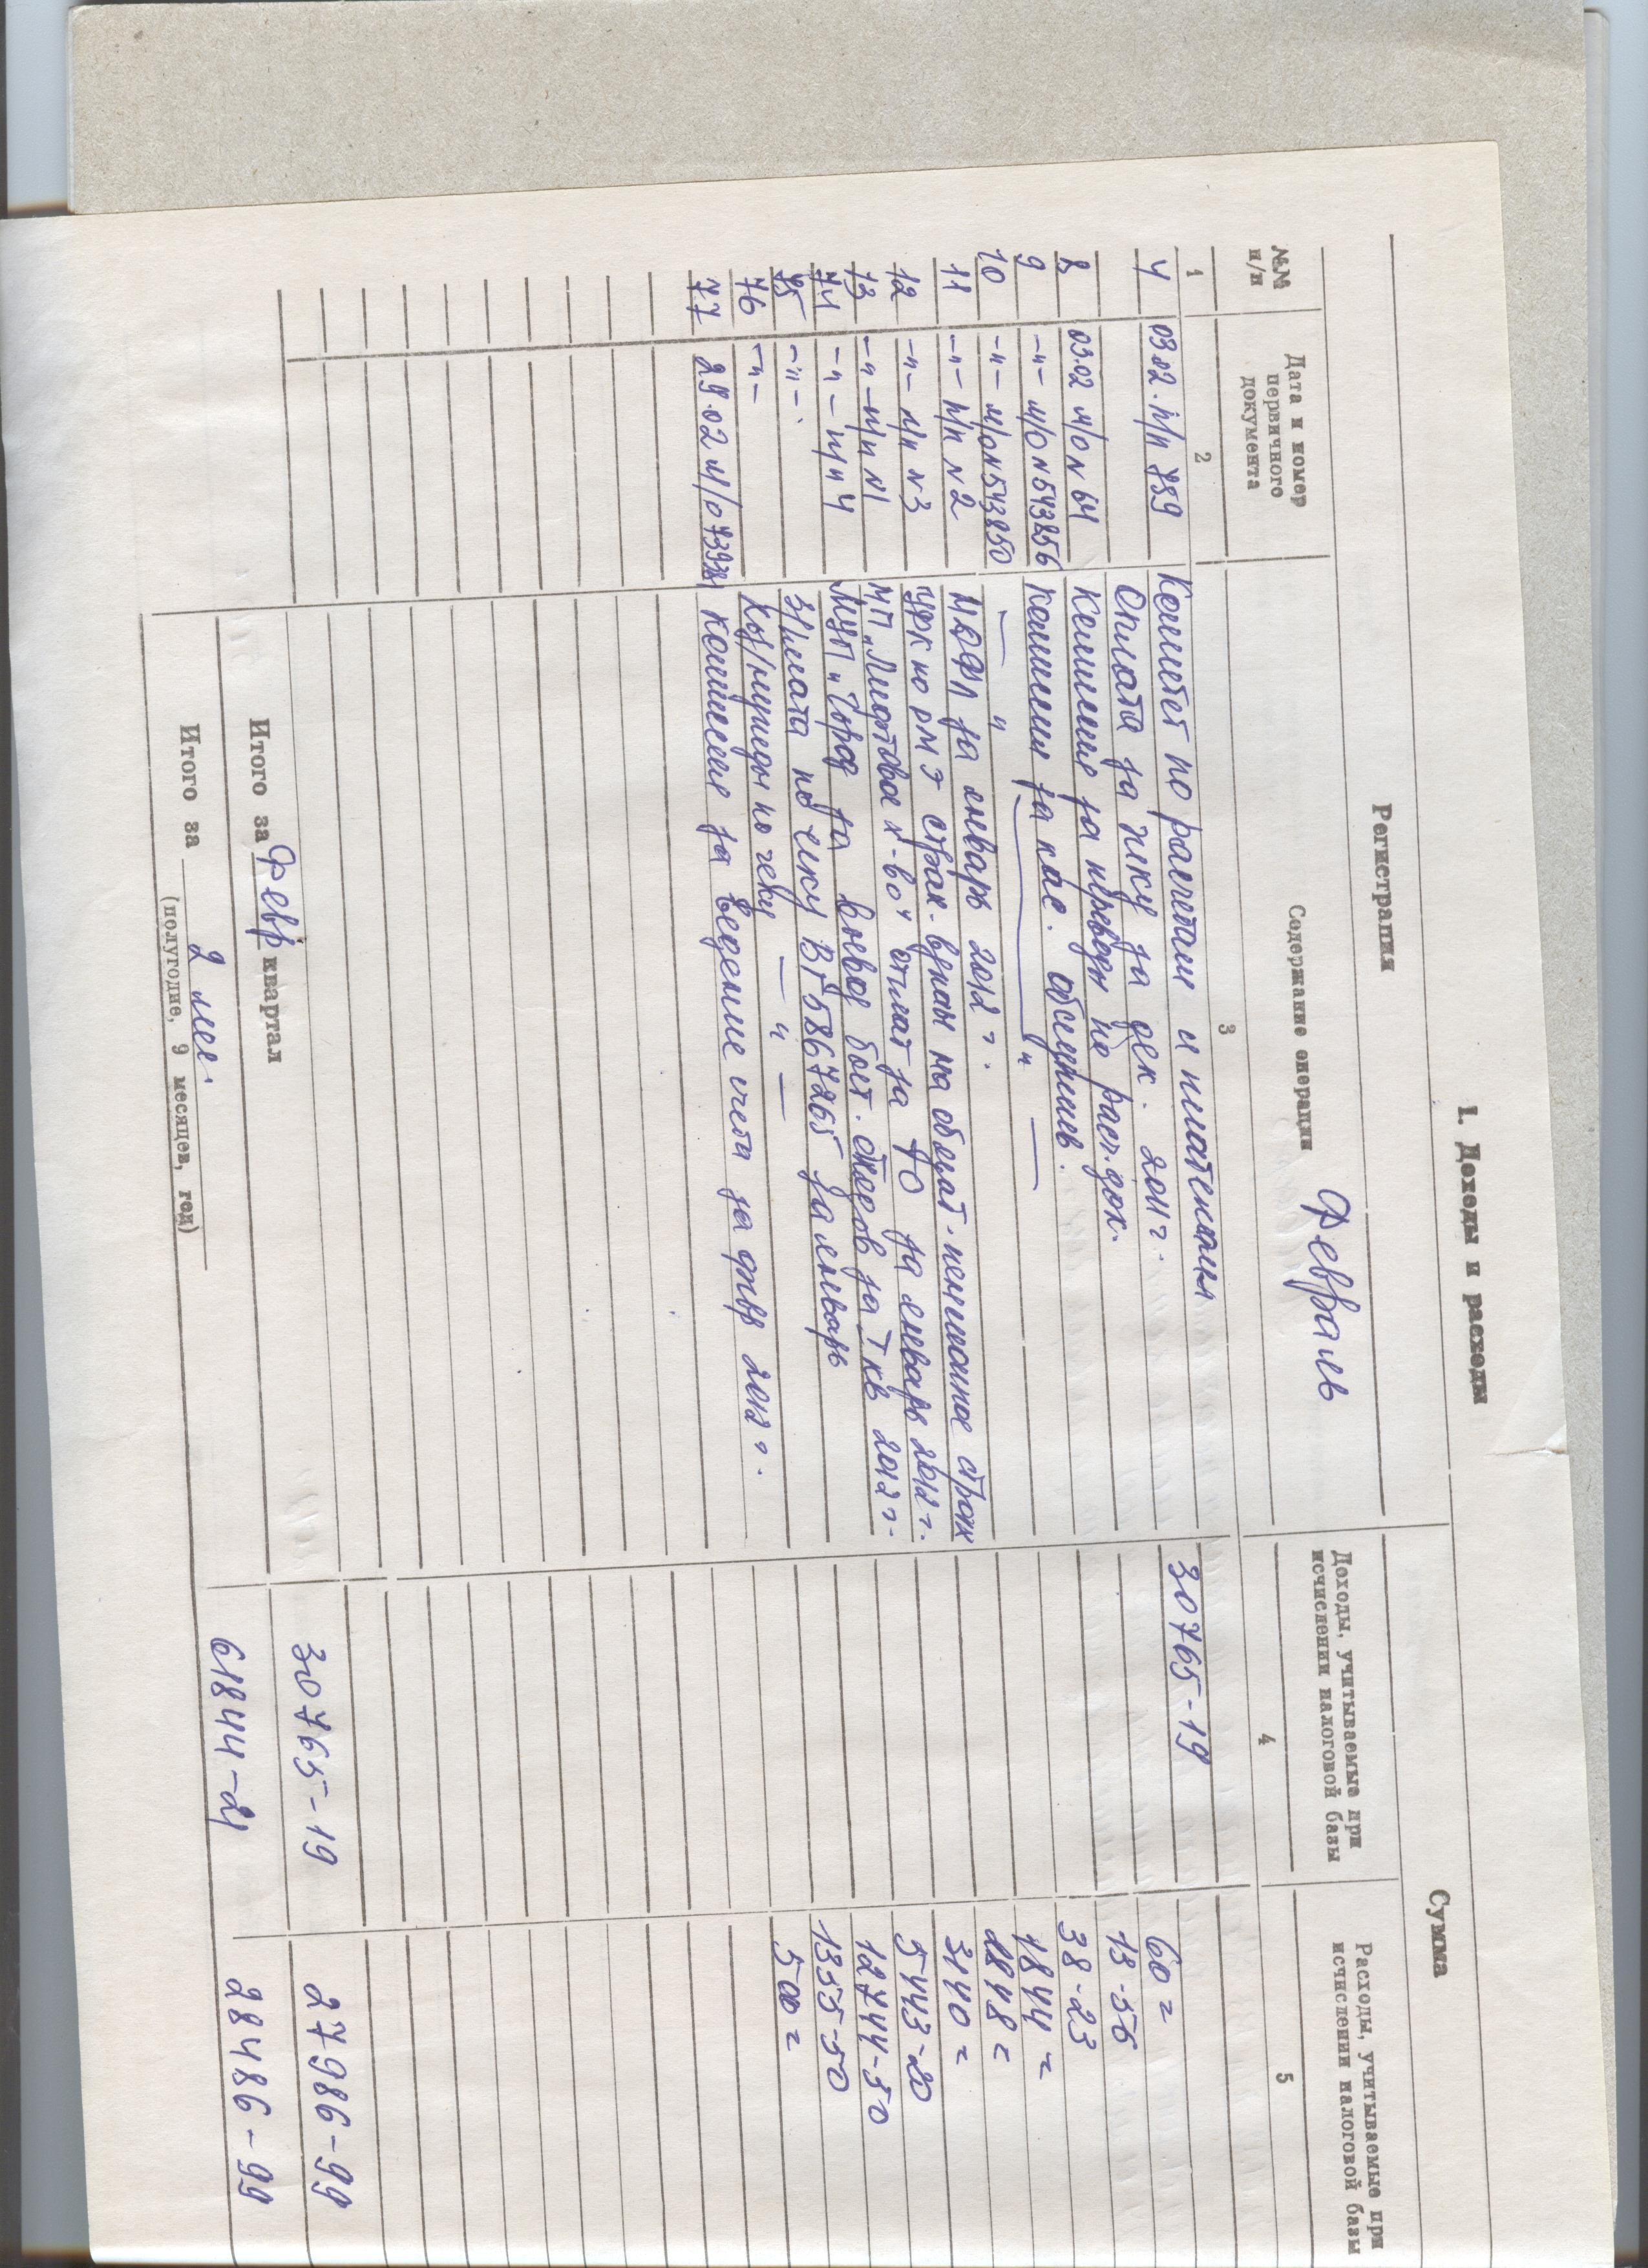 1. Доходы и расходы
Регистрация
Сумма
№№ п/п
Дата и номер первичного документа
Содержание операции
Февраль
Доходы, учитываемые при исчислении налоговой базы
Расходы, учитываемые при исчислении налоговой базы
1 2 3 4 5
03.02. п/п 789 Комитет по расчетам и 30765-19
Оплата за тех за дек. 2011 г. 60=
8 03.02 м/о N 64 Комиссия за перевод по расч. док. 13-56
9 -"- м/о N 543856 Комиссия за кас. обслужив. 38-23
10 -"- м/о N 543850 — " — 1844=
11 -"- п/п N 2 НДФЛ за январь 2012 г. 2848=
12 -"- п/п N 3 УФК по РМЭ страх. взносы на обязат. пенсионное страх 3440=
13 -"- п/п N 1 оплат за ТО за январь 2012 г. 5443-20
14 -"- п/п 4 МУП "Город" за вывоз быт. отходов за I кв 2012 г. 12744-50
15 -"- З/плата по чеку ВГ 5867265 за январь 1355-50
16 -"- по чеку — " — 500=
17 29.02 м/о комиссия за ведение счета за февр 2012 г.
Итого за Февр квартал 30765-19 27986-99
Итого за 2 мес. 61844-24 28486-99
(полугодие, 9 месяцев, год)